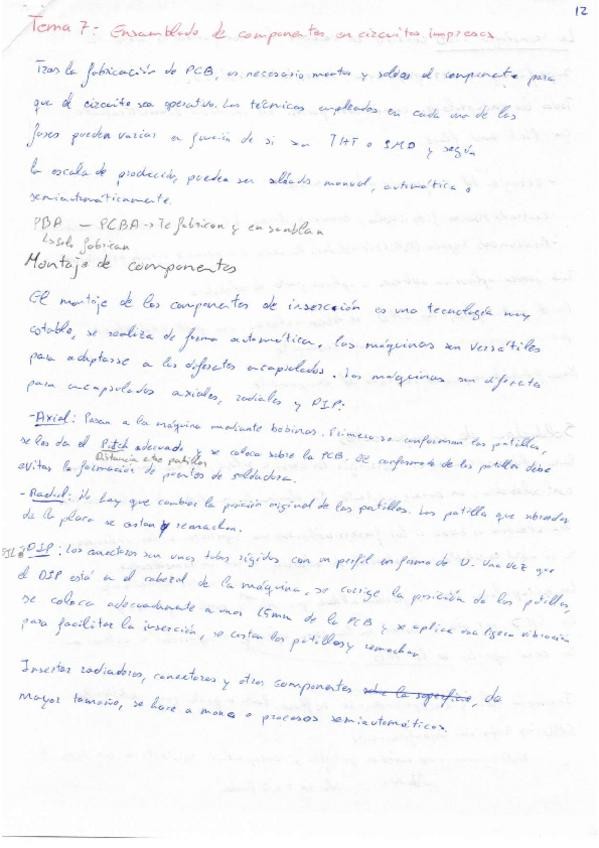 12
Tema 7: Ensamblado de componentes en circuitos impresos
Tras la fabricación de PCB, es necesario montar y soldar el componente para
que el circuito sea operativo. Las técnicas empleadas en cada una de las
fases pueden variar en función de si son THT o SMD y según
la escala de producción, pueden ser soldado manual, automática o
semiautomáticamente.
PBA — PCBA → Te fabrican y ensamblan
↳ solo fabrican
Montaje de componentes
El montaje de los componentes de inserción es una tecnología muy
estable, se realiza de forma automática. Las máquinas son versátiles
para adaptarse a los diferentes encapsulados. Las máquinas son diferentes
para encapsulados axiales, radiales y DIP:
- Axial: Pasan a la máquina mediante bobinas. Primero se conforman las patillas,
se les da el Pitch adecuado y se coloca sobre la PCB. El conformado de las patillas debe
Distancia entre patillas
evitar la formación de puentes de soldadura.
- Radial: No hay que cambiar la posición original de las patillas. Las patillas que sobresalen
de la placa se cortan y remachan.
DIP: Los conectores son unos tubos rígidos con un perfil en forma de U. Una vez que
el DIP está en el cabezal de la máquina, se corrige la posición de las patillas,
se coloca adecuadamente a unos 15mm de la PCB y se aplica una ligera vibración
para facilitar la inserción, se cortan las patillas y remachan.
Insertar radiadores, conectores y otros componentes sobre la superficie, de
mayor tamaño, se hace a mano o procesos semiautomáticos.